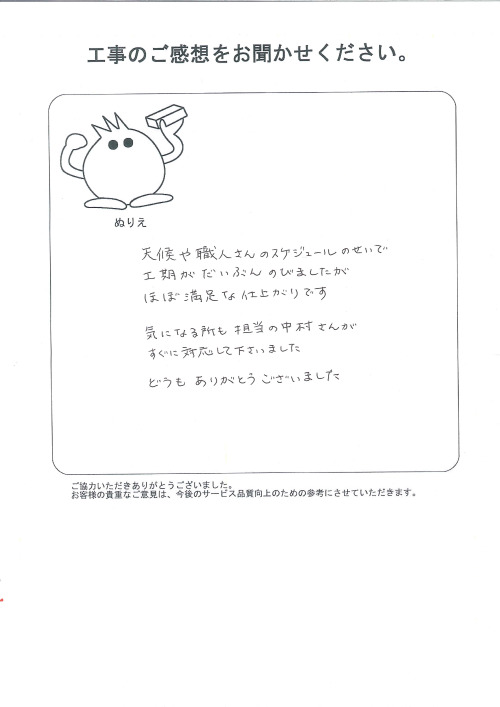 工事のご感想をお聞かせください。
ぬりえ
天候や職人さんのスケジュールのせいで
工期がだいぶんのびましたが
ほぼ満足な仕上がりです
気になる所も担当の中村さんが
すぐに対応して下さいました
どうもありがとうございました
ご協力いただきありがとうございました。
お客様の貴重なご意見は、今後のサービス品質向上のための参考にさせていただきます。